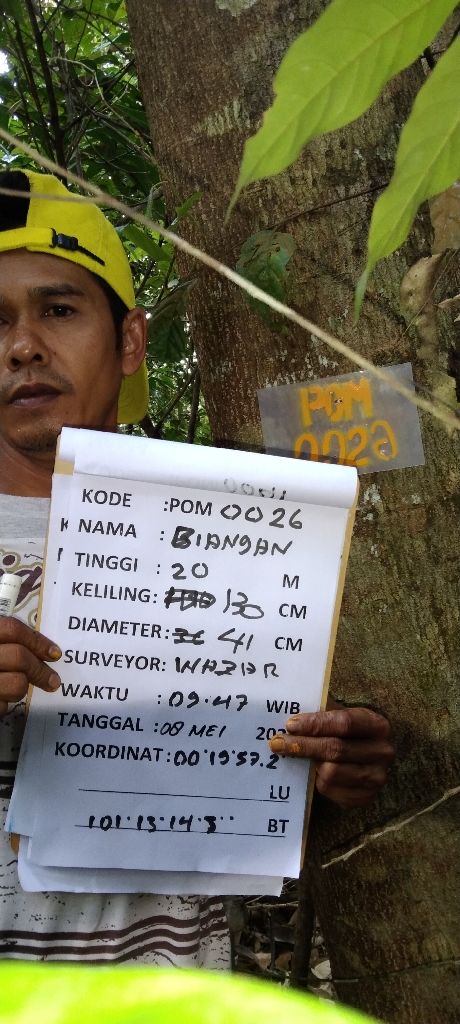 POM
0026
KODE :POM 0026
NAMA : BIANGAN
TINGGI : 20 M
KELILING: 130 CM
DIAMETER: 41 CM
SURVEYOR: WAZAR
WAKTU : 09.47 WIB
TANGGAL :08 MEI 202
KOORDINAT:00°19'57.2"
LU
101°13'14.3" BT